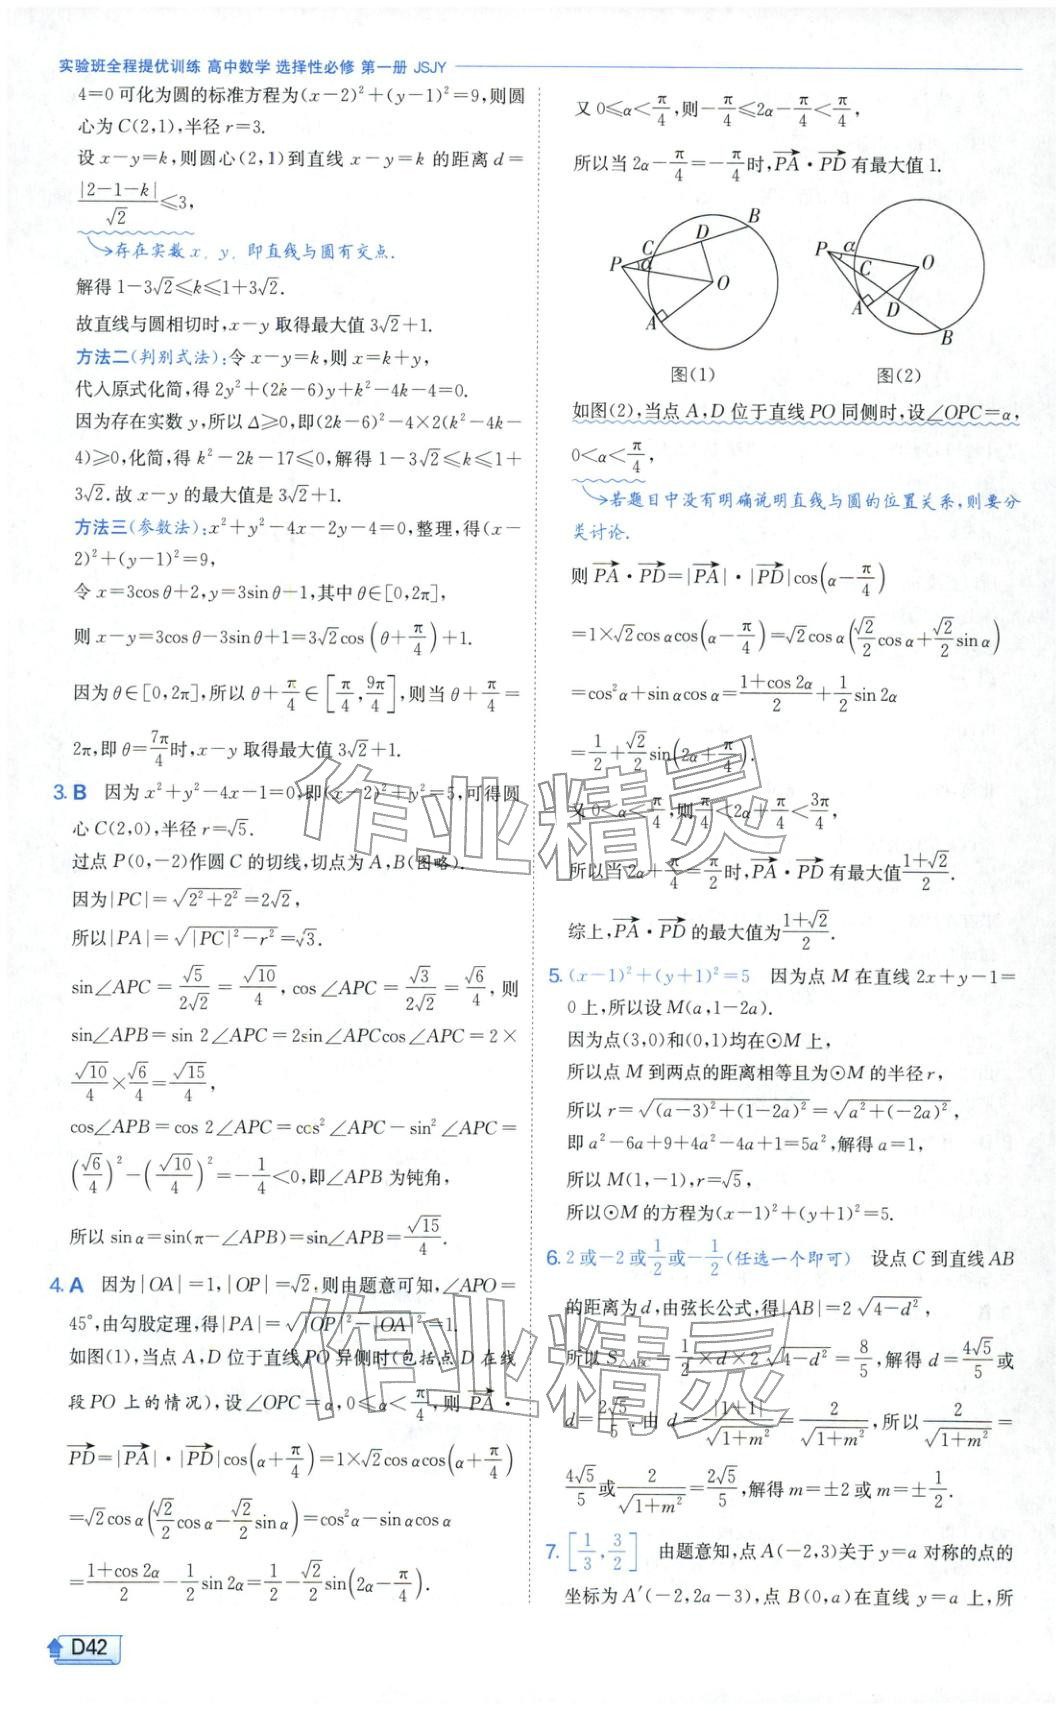 实验班全程提优训练 高中数学 选择性必修 第一册 JSJY
4=0可化为圆的标准方程为(x-2)²+(y-1)²=9,则圆
心为C(2,1),半径r=3.
设x-y=k,则圆心(2,1)到直线x-y=k的距离d=
|2-1-k|/√2≤3,
存在实数x,y,即直线与圆有交点.
解得1-3√2≤k≤1+3√2.
故直线与圆相切时,x-y取得最大值3√2+1.
方法二(判别式法):令x-y=k,则x=k+y,
代入原式化简,得2y²+(2k-6)y+k²-4k-4=0.
因为存在实数y,所以Δ≥0,即(2k-6)²-4×2(k²-4k-
4)≥0,化简,得k²-2k-17≤0,解得1-3√2≤k≤1+
3√2.故x-y的最大值是3√2+1.
方法三(参数法):x²+y²-4x-2y-4=0,整理,得(x-
2)²+(y-1)²=9,
令x=3cos θ+2,y=3sin θ+1,其中θ∈[0,2π],
则x-y=3cos θ-3sin θ+1=3√2cos(θ+π/4)+1.
因为θ∈[0,2π],所以θ+π/4∈[π/4,9π/4],则当θ+π/4=
2π,即θ=7π/4时,x-y取得最大值3√2+1.
3. B 因为x²+y²-4x-1=0,即(x-2)²+y²=5,可得圆
心C(2,0),半径r=√5.
过点P(0,-2)作圆C的切线,切点为A,B(图略).
因为|PC|=√(2²+2²)=2√2,
所以|PA|=√(|PC|²-r²)=√3.
sin∠APC=√5/(2√2)=√10/4,cos∠APC=√3/(2√2)=√6/4,则
sin∠APB=sin 2∠APC=2sin∠APCcos∠APC=2×
√10/4×√6/4=√15/4,
cos∠APB=cos 2∠APC=cos²∠APC-sin²∠APC=
(√6/4)²-(√10/4)²=-1/4<0,即∠APB为钝角,
所以sin α=sin(π-∠APB)=sin∠APB=√15/4.
4. A 因为|OA|=1,|OP|=√2,则由题意可知,∠APO=
45°,由勾股定理,得|PA|=√(|OP|²-|OA|²)=1.
如图(1),当点A,D位于直线PO异侧时(包括点D在线
段PO上的情况),设∠OPC=α,0≤α<π/4,则PA→·
PD→=|PA→|·|PD→|cos(α+π/4)=1×√2cos αcos(α+π/4)
=√2cos α(√2/2cos α-√2/2sin α)=cos²α-sin αcos α
=(1+cos 2α)/2-1/2sin 2α=1/2-√2/2sin(2α-π/4).
D42
又0≤α<π/4,则-π/4≤2α-π/4<π/4,
所以当2α-π/4=-π/4时,PA→·PD→有最大值1.
P C D B α O A
P α C O A D B
图(1) 图(2)
如图(2),当点A,D位于直线PO同侧时,设∠OPC=α,
0<α<π/4,
若题目中没有明确说明直线与圆的位置关系,则要分
类讨论.
则PA→·PD→=|PA→|·|PD→|cos(α-π/4)
=1×√2cos αcos(α-π/4)=√2cos α(√2/2cos α+√2/2sin α)
=cos²α+sin αcos α=(1+cos 2α)/2+1/2sin 2α
=1/2+√2/2sin(2α+π/4).
又0<α<π/4,则π/4<2α+π/4<3π/4,
所以当2α+π/4=π/2时,PA→·PD→有最大值(1+√2)/2.
综上,PA→·PD→的最大值为(1+√2)/2.
5. (x-1)²+(y+1)²=5 因为点M在直线2x+y-1=
0上,所以设M(a,1-2a).
因为点(3,0)和(0,1)均在⊙M上,
所以点M到两点的距离相等且为⊙M的半径r,
所以r=√((a-3)²+(1-2a)²)=√(a²+(-2a)²),
即a²-6a+9+4a²-4a+1=5a²,解得a=1,
所以M(1,-1),r=√5,
所以⊙M的方程为(x-1)²+(y+1)²=5.
6. 2或-2或1/2或-1/2(任选一个即可) 设点C到直线AB
的距离为d,由弦长公式,得|AB|=2√(4-d²),
所以S△ABC=1/2×d×2√(4-d²)=8/5,解得d=4√5/5或
d=2√5/5.由d=|1+1|/√(1+m²)=2/√(1+m²),所以2/√(1+m²)=
4√5/5或2/√(1+m²)=2√5/5,解得m=±2或m=±1/2.
7. [1/3,3/2] 由题意知,点A(-2,3)关于y=a对称的点的
坐标为A′(-2,2a-3),点B(0,a)在直线y=a上,所
作业精灵
作业精灵